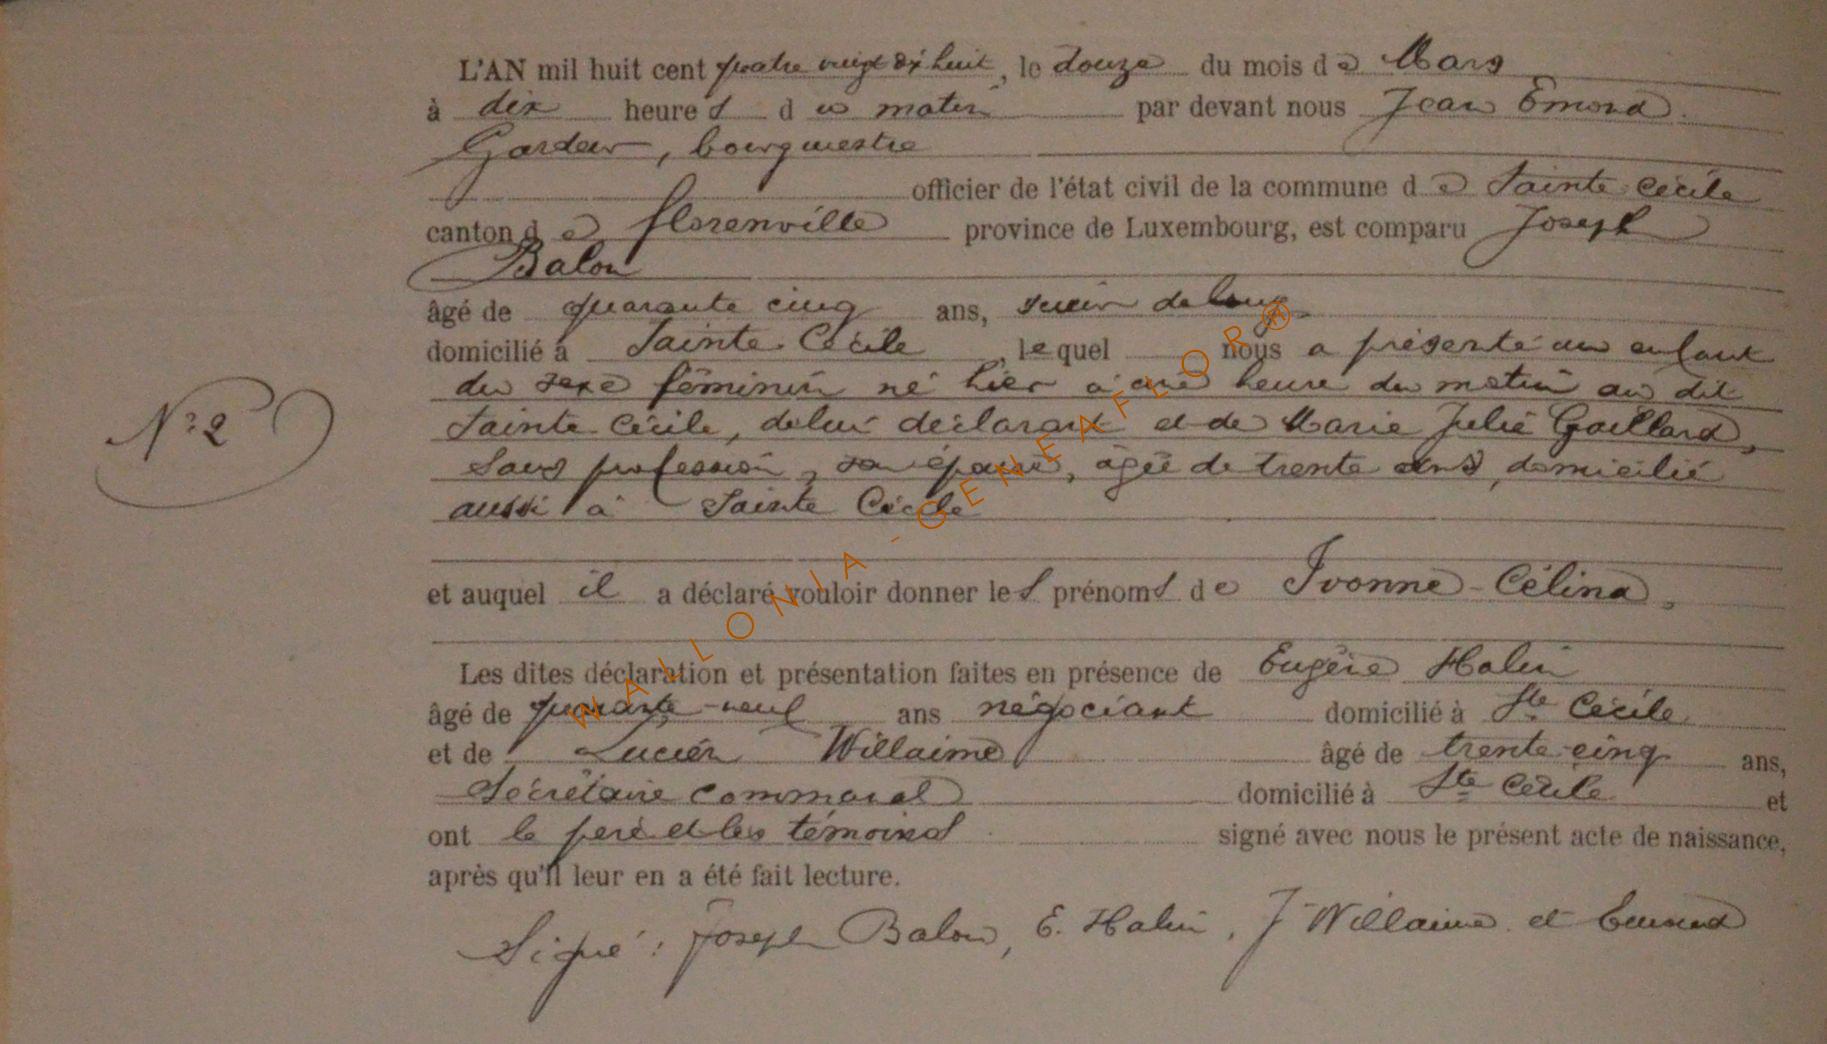 L'AN mil huit cent quatre vingt dix huit, le douze du mois de Mars
à dix heures du matin par devant nous Jean Emond
Gardeur, bourgmestre
officier de l'état civil de la commune de Sainte Cécile
canton de Florenville province de Luxembourg, est comparu Joseph
Balon
âgé de quarante cinq ans, de long
domicilié à Sainte Cécile, lequel nous a présenté un enfant
du sexe féminin né hier à une heure du matin au dit
Sainte Cécile, de lui déclarant et de Marie Julie Gaillard,
Sans profession, son épouse, âgée de trente ans, domicilié
aussi à Sainte Cécile
N° 2
et auquel il a déclaré vouloir donner les prénoms de Ivonne-Célina,
Les dites déclaration et présentation faites en présence de Eugène Halin
âgé de quarante-neuf ans négociant domicilié à Ste Cécile
et de Lucien Willaime âgé de trente-cinq ans,
Sécrétaire communal domicilié à Ste Cécile et
ont le père et les témoins signé avec nous le présent acte de naissance,
après qu'il leur en a été fait lecture.
Signé : Joseph Balon, E. Halin, J Willaime et Emond
WALLONIA - GENEAFLOR®